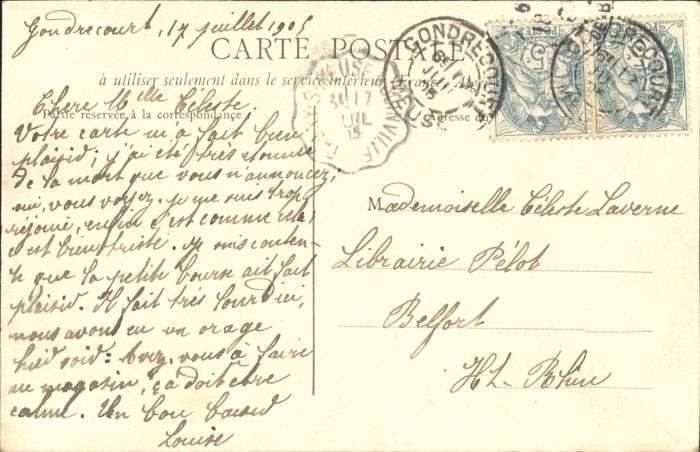 Gondrecourt, 17 juillet 1905
CARTE POSTALE
à utiliser seulement dans le service intérieur (France, Algérie
Partie réservée à la correspondance
Adresse du
GONDRECOURT
MEUSE
GONDRECOURT
Chère Melle Céleste.
Votre carte m'a fait bien
plaisid; j'ai été très etonnée
de la mort que vous n'annoncez,
oui, vous voyez. je me suis trop
réjouie, enfin c'est comme cela,
c'est bien triste. Je suis conten-
te que la petite bourse ait fait
plaisid. Il fait très lourd ici,
nous avons eu un orage
hied soid: Avez-vous à faire
au magasin, ça doit être
calme. Un bon baised
Louise
Mademoiselle Céleste Laverne
Librairie Pélot
Belfort
Ht-Rhin